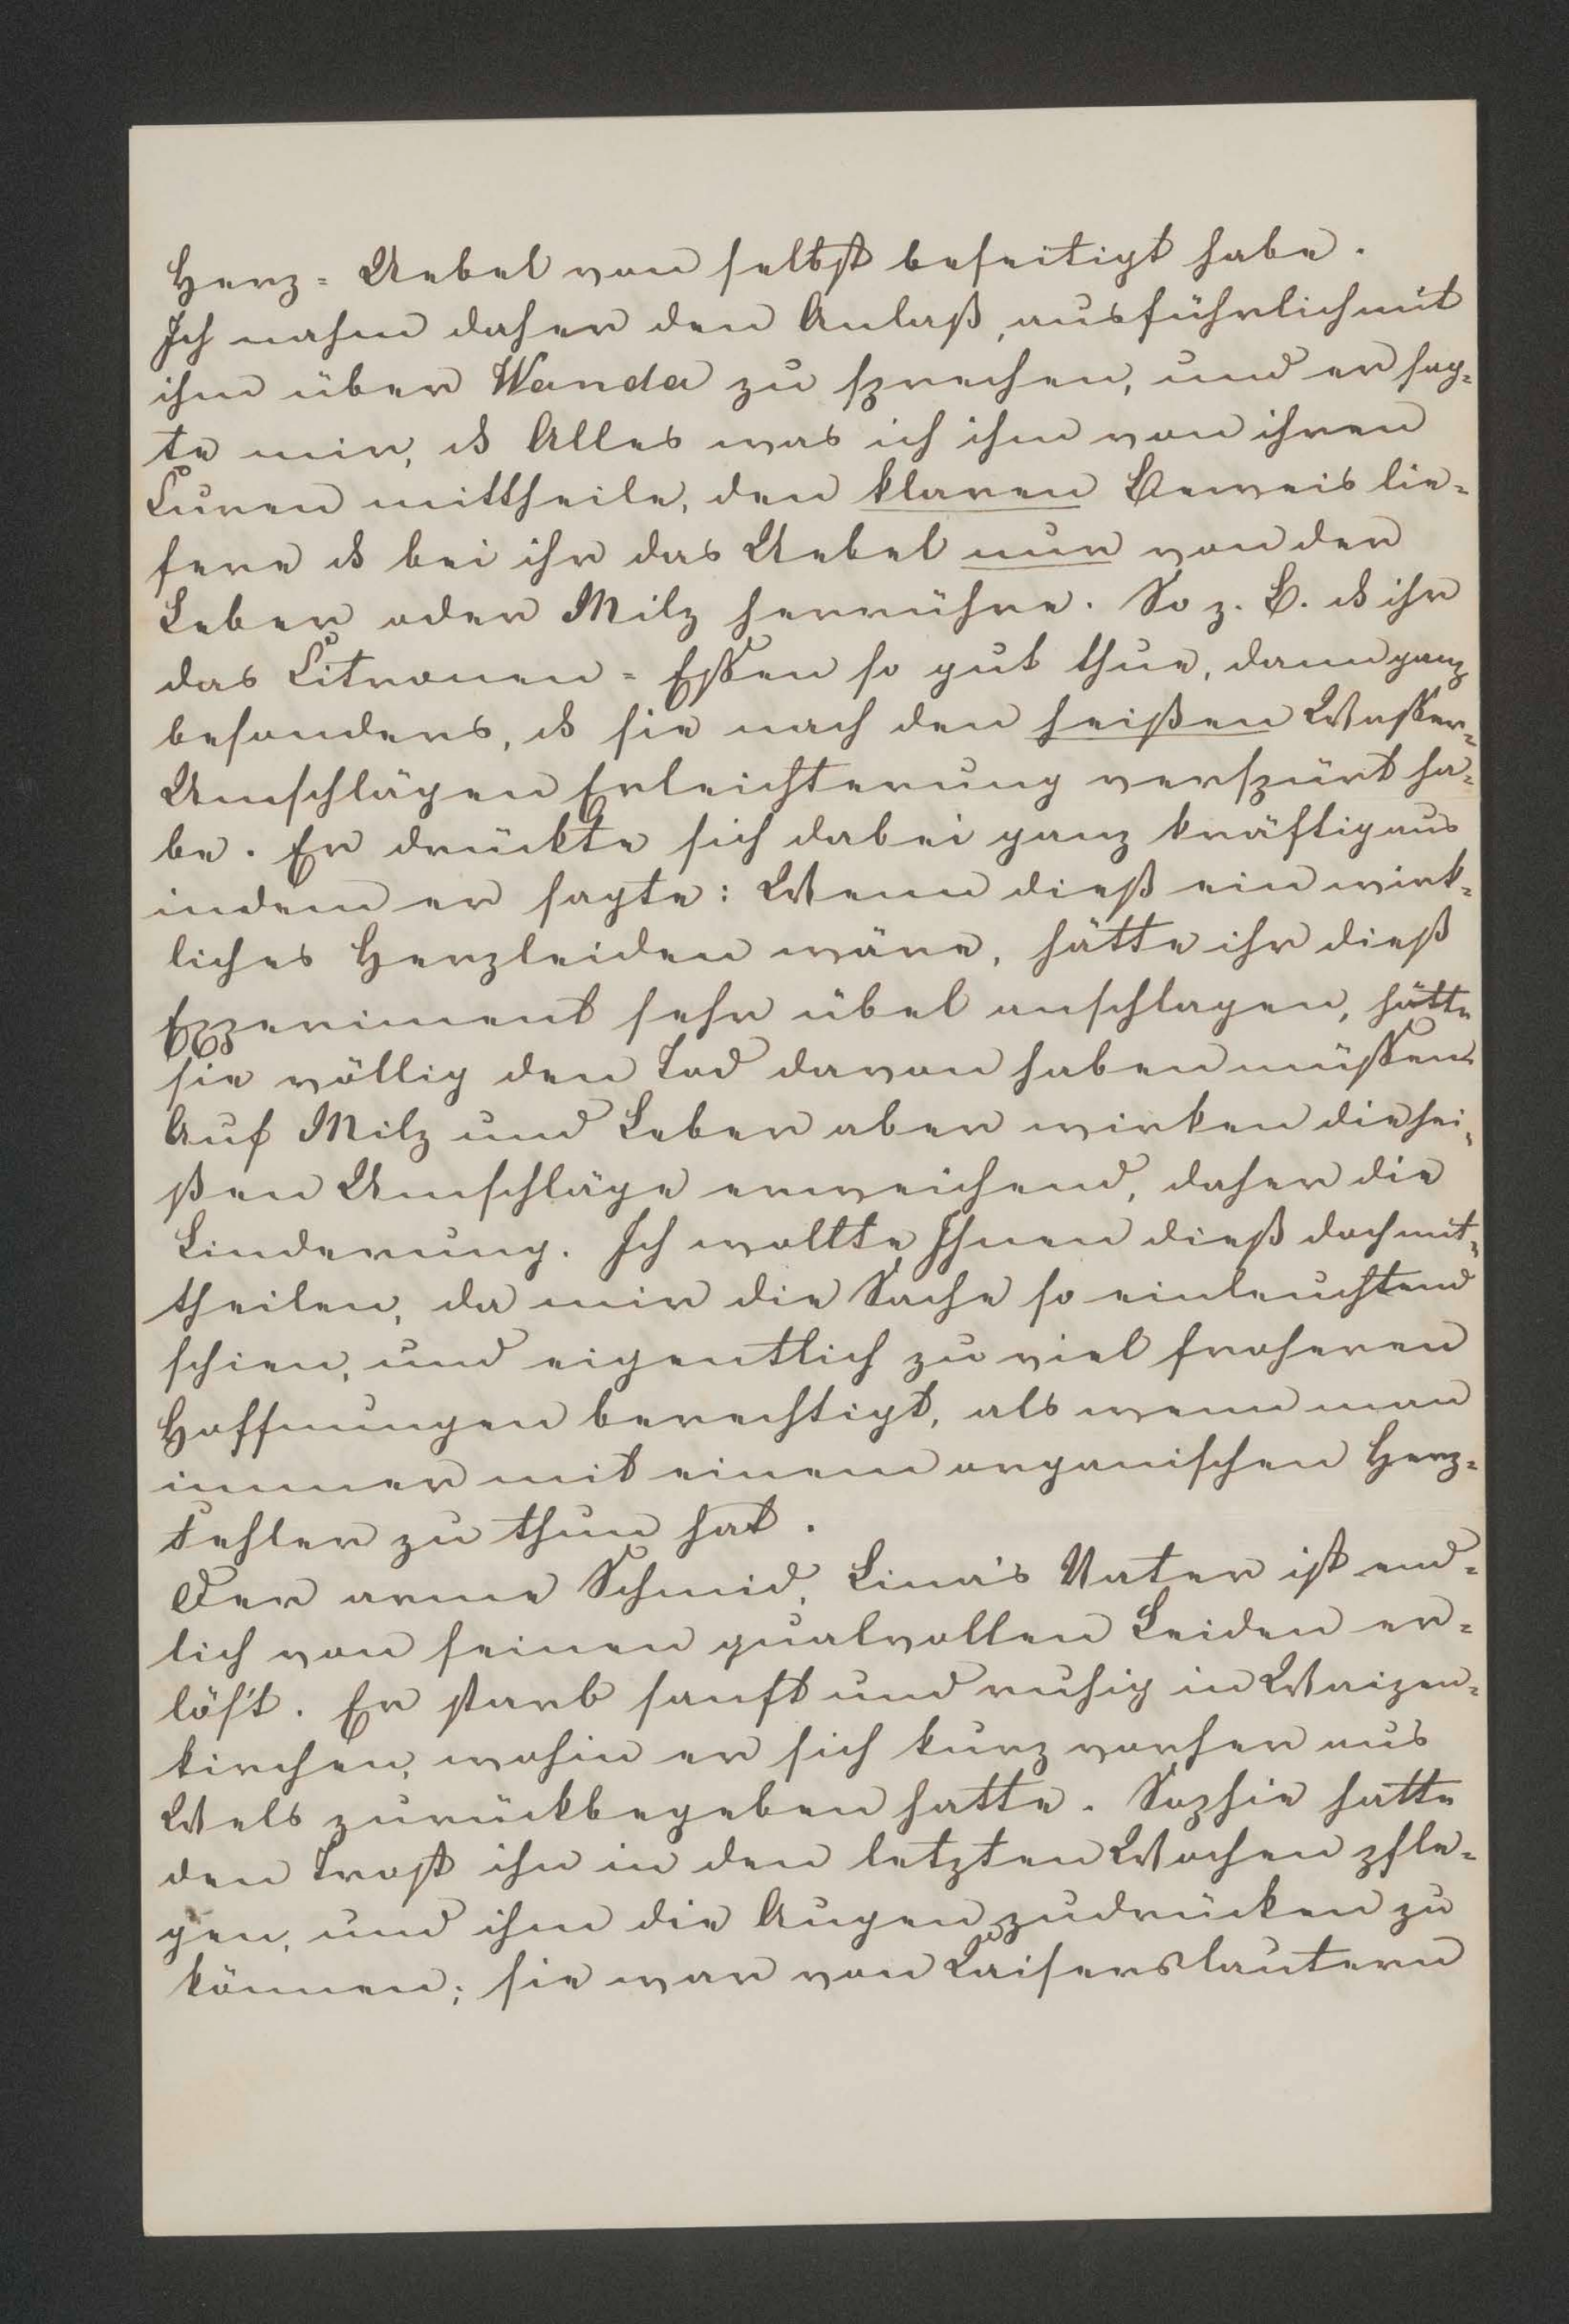 Herz= Uebel von selbst beseitigt habe.
Ich nahm daher den Anlaß, ausführlich mit
ihm über Wanda zu sprechen, und er sag=
te mir, dß Alles was ich ihm von ihren
Curen mittheile, den klaren Beweis lie=
fere dß bei ihr das Uebel nur von der
Leber oder Milz herrühre. So z. B. dß ihr
das Citronen= Essen so gut thue, dann ganz
besonders, dß sie nach den heißen Wasser=
Umschlägen Erleichterung verspürt ha=
be. Er drückte sich dabei ganz kräftig aus
indem er sagte: Wenn dieß ein wirk=
liches Herzleiden wäre, hätte ihr dieß
Experiment sehr übel anschlagen, hätte
sie völlig den Tod davon haben müssen.
Auf Milz und Leber aber wirken die hei=
ßen Umschläge erweichend, daher die
Linderung. Ich wollte Ihnen dieß doch mit=
theilen, da mir die Sache so einleuchtend
schien, und eigentlich zu viel froheren
Hoffnungen berechtigt, als wenn man
immer mit einem organischen Herz=
Fehler zu thun hat.
Der arme Schmid, Lina's Vater ist end=
lich von seinen qualvollen Leiden er=
lös't. Er starb sanft und ruhig in Waizen=
kirchen, wohin er sich kurz vorher aus
Wels zurückbegeben hatte. Sophie hatte
den Trost ihn in den letzten Wochen pfle=
gen, und ihm die Augen zudrücken zu
können; sie war von Kaiserslautern